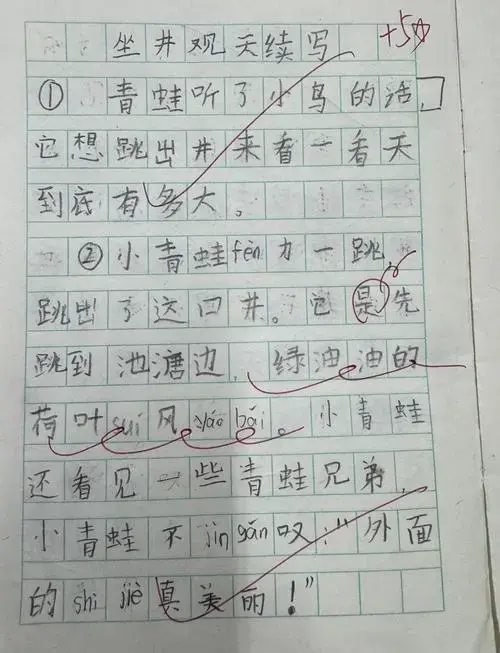 坐井观天续写 +5☆
① 青蛙听了小鸟的话，
它想跳出井来看一看天
到底有多大。
② 小青蛙fèn力一跳，
跳出了这口井。它是先
跳到池溏边，绿油油的
荷叶suí风yáo bǎi。小青蛙
还看见一些青蛙兄弟，
小青蛙不jīn gǎn叹：“外面
的shì jiè真美丽！”